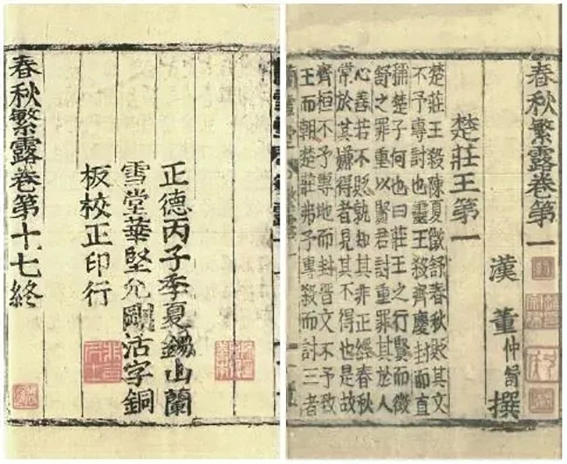 春秋繁露卷第一
漢董仲舒撰
楚莊王第一
楚莊王殺陳夏徵舒春秋貶其文
不予專討也靈王殺齊慶封而直
稱楚子何也曰莊王之行賢而徵
舒之罪重以賢君討重罪其於人
心善若不貶孰知其非正經春秋
常於其嫌得者見其不得也是故
齊桓不予專地而封晉文不予致
王而朝楚莊弗予專殺而討三者
蘭雪堂
正德丙子季夏錫山蘭
雪堂華堅允剛活字銅
板校正印行
春秋繁露卷第十七終